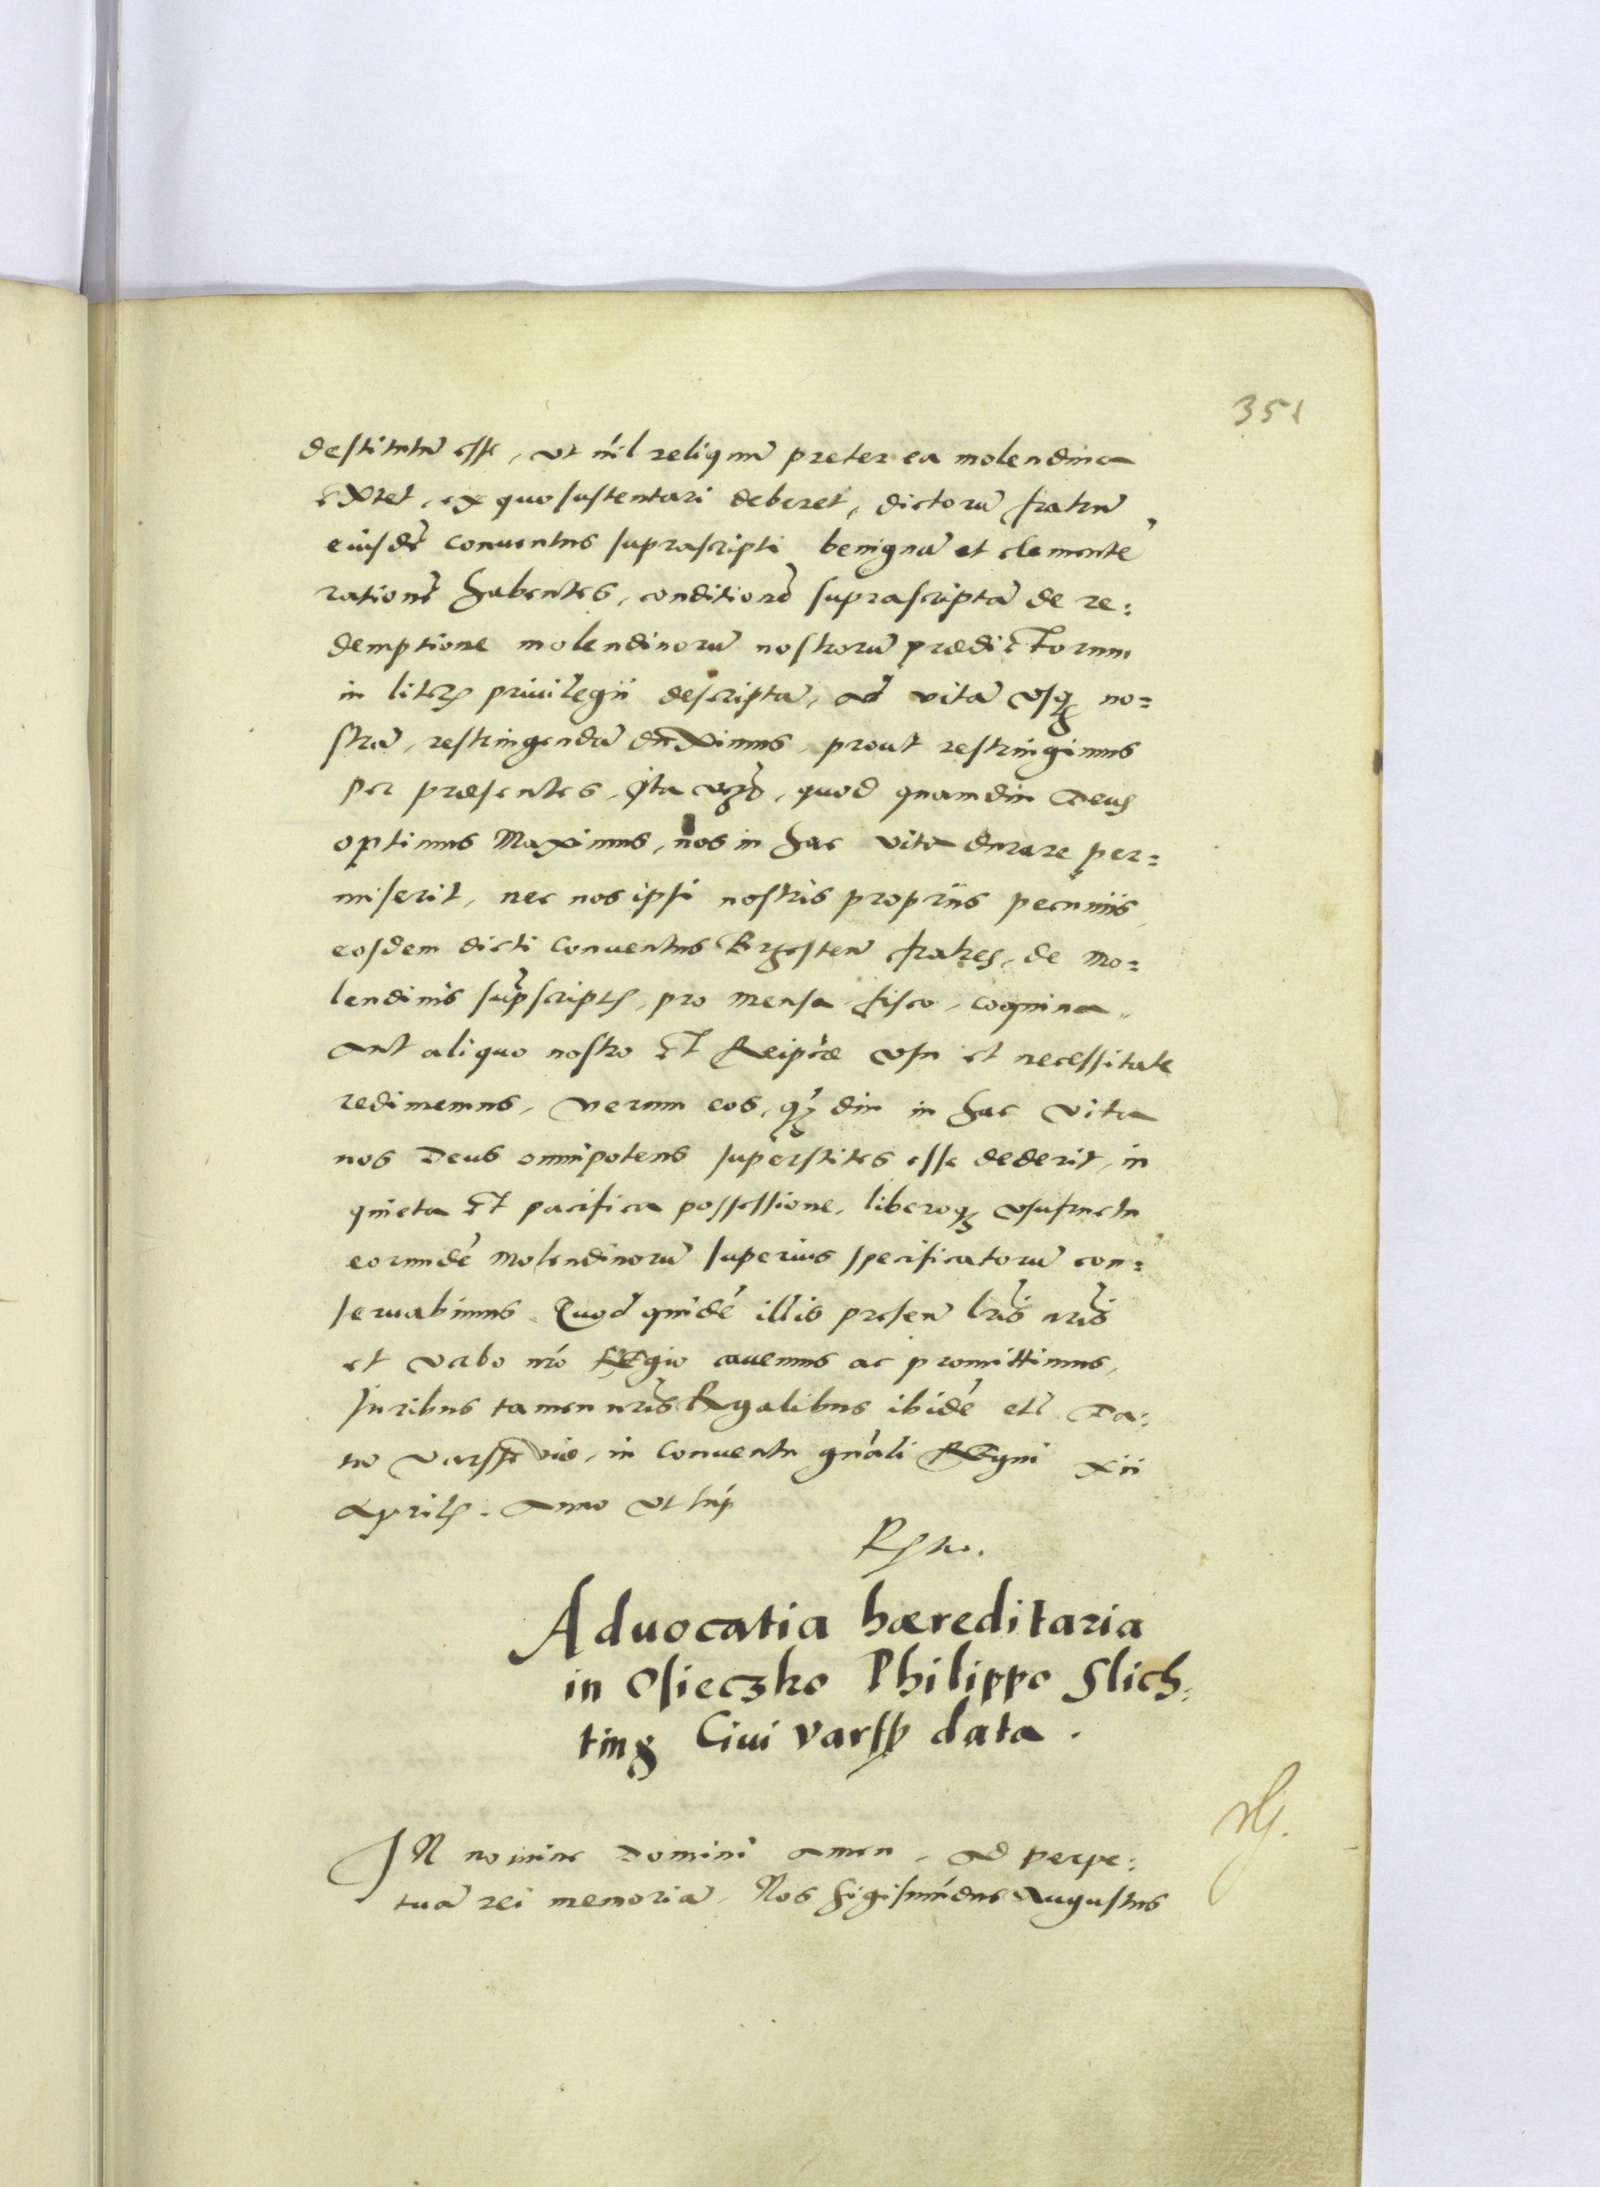 351
destitutũ esse, ut nil reliquũ preter ea molendina
extet, ex quo sustentari deberet, dictorũ fratrũ
eiusdẽ conuentus suprascripti benignã et clementẽ
rationẽ habentes, conditionẽ suprascriptã de re:
demptione molendinorũ nostrorũ prædictorum
in literis priuilegii descriptã, ad vitã vsq̃ no=
strã, restringendã duximus, prout restringimus
per præsentes, Ita vero, quod quamdiu Deus
optimus Maximus, nos in hac vita durare per=
miserit, nec nos ipsi nostris propriis pecuniis
eosdem dicti Conuentus Brzesteñ fratres, de mo=
lendinis sup̃scriptis, pro mensa, fisco, coquina,
aut aliquo nostro et Reipcæ vsu et necessitate
redimemus, verum eos, q̃ʒ diu in hac vita
nos Deus omnipotens superstites esse dederit, in
quieta et pacifica possessione, liberoq̃ vsufructu
eorundẽ molendinorũ superius specificatorũ con=
seruabimus. Quod quidẽ illis preseñ lr̃is nr̃is
et verbo nrõ Regio cauemus ac promittimus,
Iuribus tamen nr̃is Regalibus ibidẽ etc̃ Da:
tũ Varssouiæ, in Conuentu gñali Regni xii
Aprilis. Anno vt sup̃
Aduocatia hæreditaria
in Osieczko Philippo Slich:
ting Ciui Varss data.
IN nomine Domini amen. Ad perpe:
tuã rei memoriã. Nos Sigismũdus Augustus